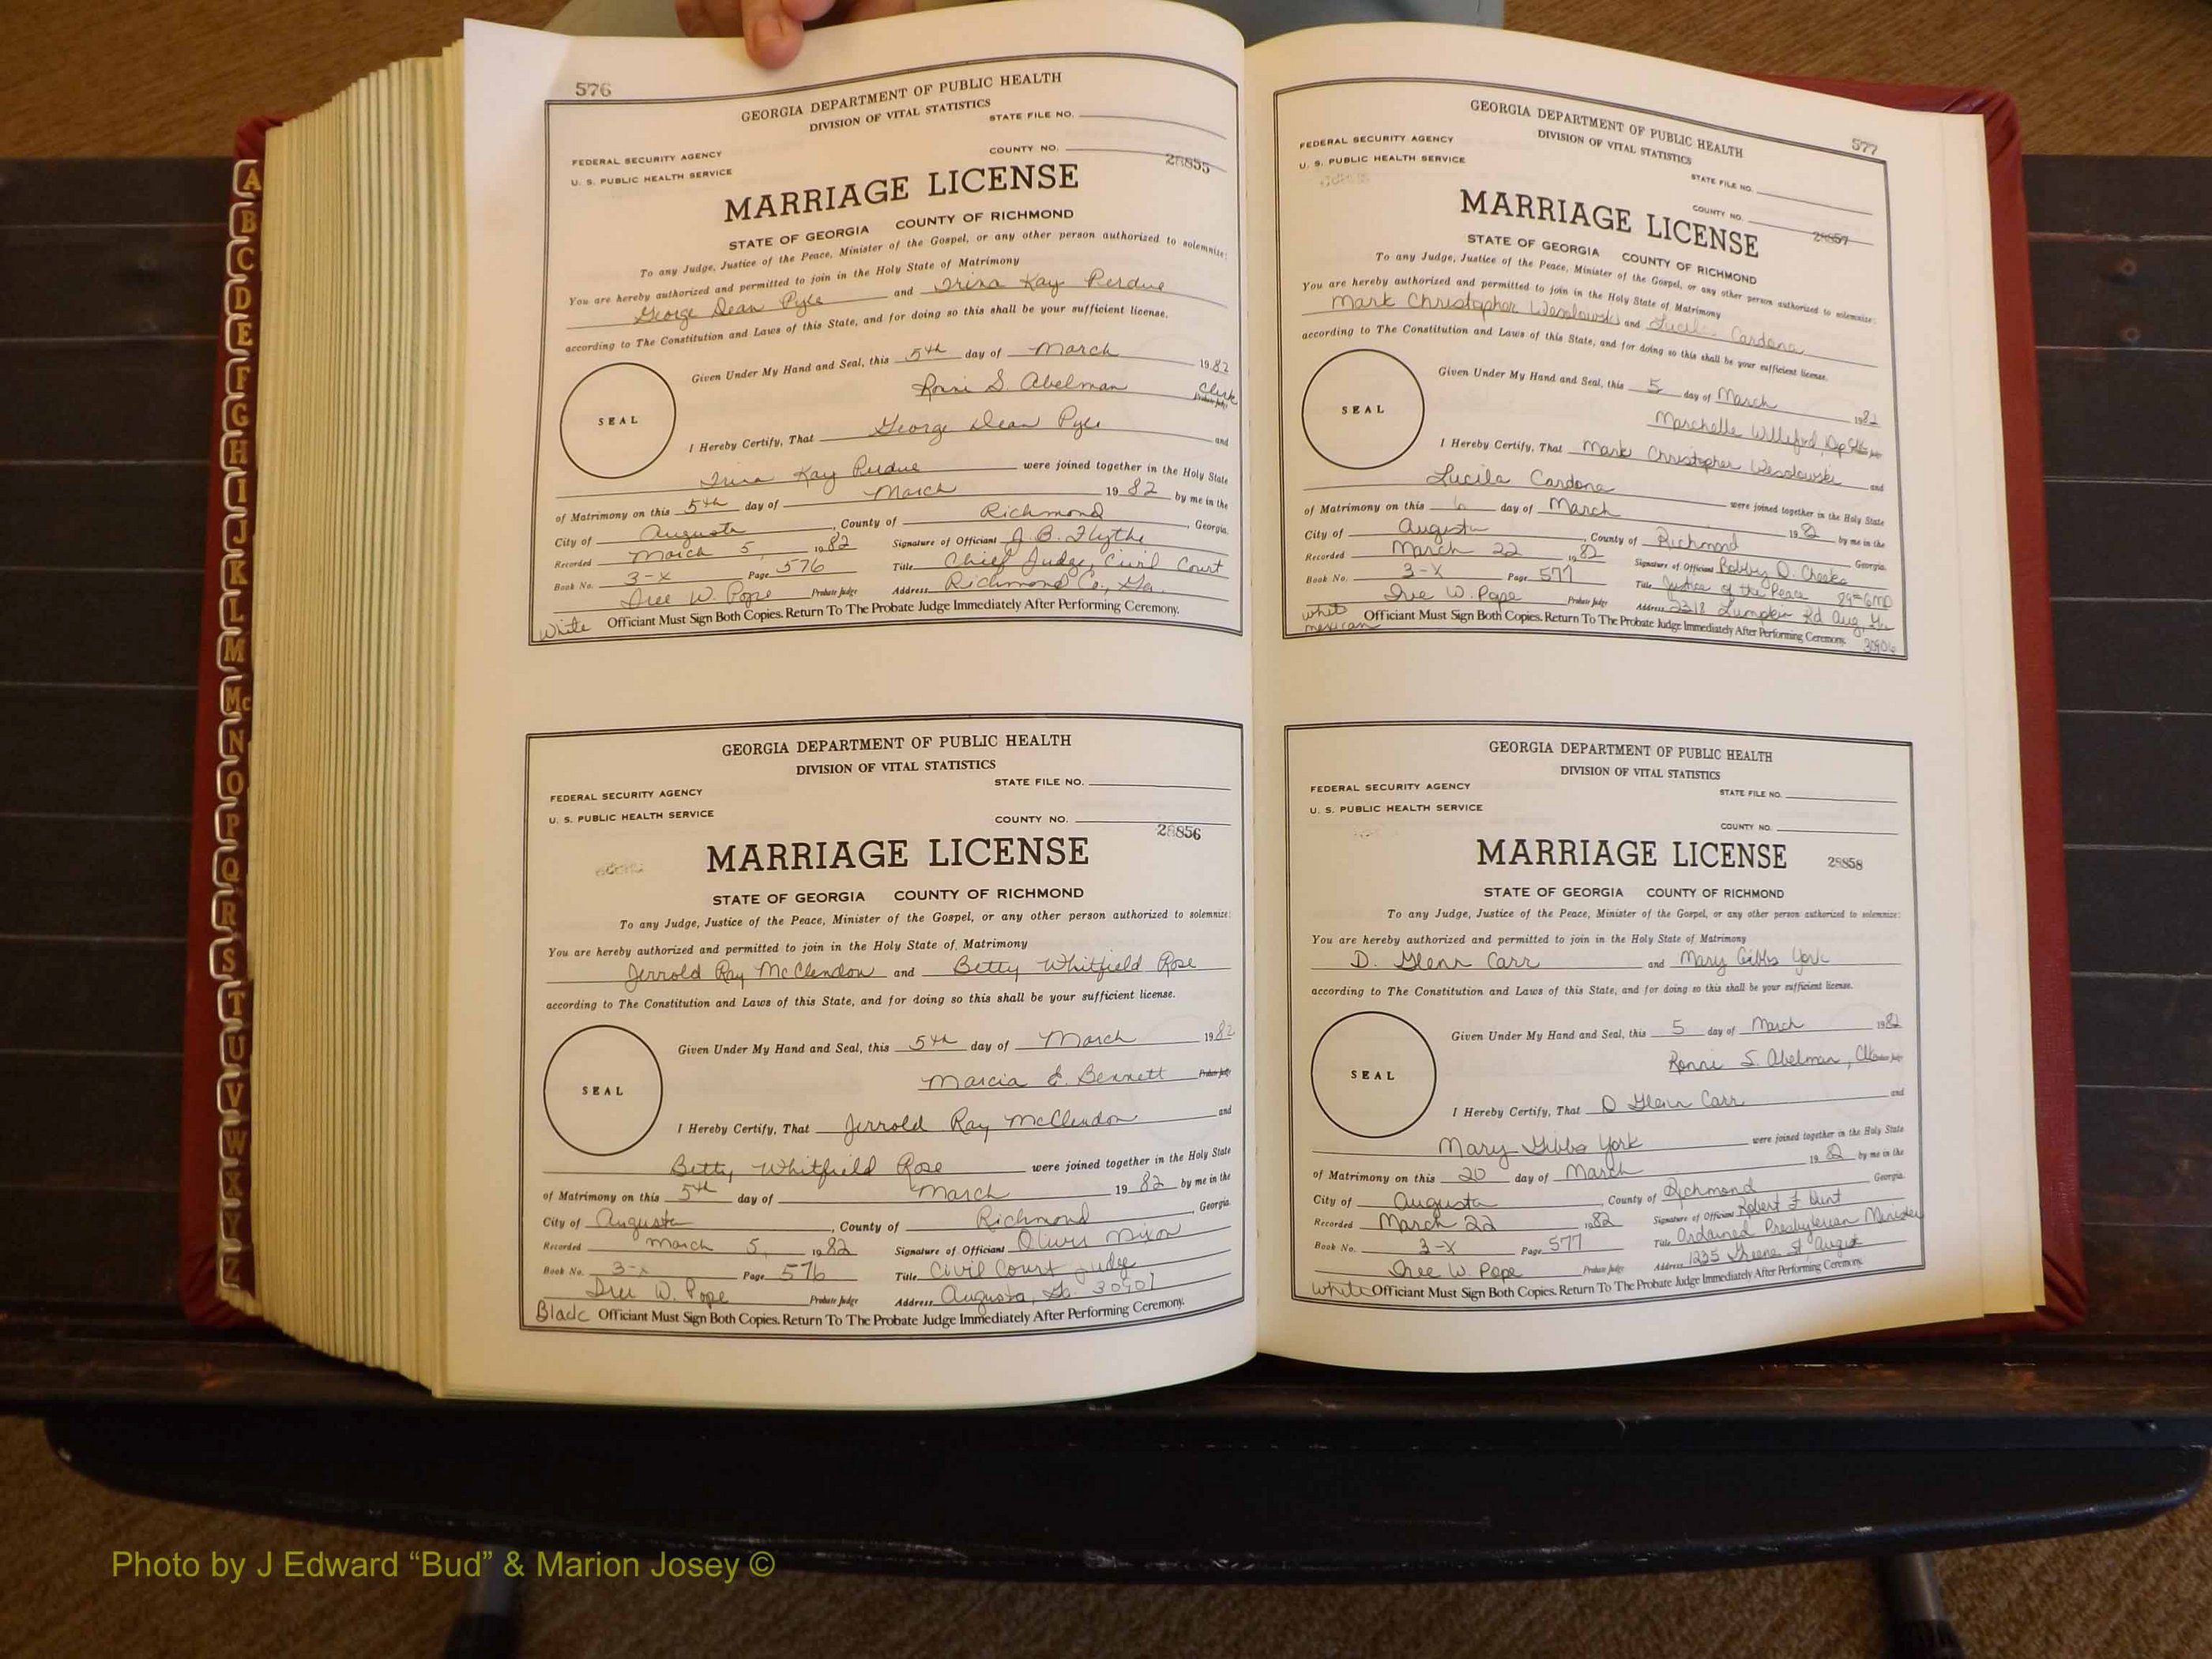 576
GEORGIA DEPARTMENT OF PUBLIC HEALTH
DIVISION OF VITAL STATISTICS
STATE FILE NO.
FEDERAL SECURITY AGENCY
COUNTY NO. 28855
U. S. PUBLIC HEALTH SERVICE
MARRIAGE LICENSE
STATE OF GEORGIA COUNTY OF RICHMOND
To any Judge, Justice of the Peace, Minister of the Gospel, or any other person authorized to solemnize:
You are hereby authorized and permitted to join in the Holy State of Matrimony
George Dean Pyle and Trina Kay Perdue
according to The Constitution and Laws of this State, and for doing so this shall be your sufficient license.
Given Under My Hand and Seal, this 5th day of March 1982
Ronni S. Abelman Clerk
Probate Judge
SEAL
I Hereby Certify, That George Dean Pyle and
Trina Kay Perdue were joined together in the Holy State
of Matrimony on this 5th day of March 1982 by me in the
City of Augusta, County of Richmond, Georgia.
Recorded March 5, 1982 Signature of Officiant J. B. Flythe
Book No. 3-X Page 576 Title Chief Judge, Civil Court
Iree W. Pope Probate Judge Address Richmond Co., Ga.
White Officiant Must Sign Both Copies. Return To The Probate Judge Immediately After Performing Ceremony.
GEORGIA DEPARTMENT OF PUBLIC HEALTH
DIVISION OF VITAL STATISTICS
STATE FILE NO.
FEDERAL SECURITY AGENCY
U. S. PUBLIC HEALTH SERVICE
COUNTY NO. 28856
MARRIAGE LICENSE
STATE OF GEORGIA COUNTY OF RICHMOND
To any Judge, Justice of the Peace, Minister of the Gospel, or any other person authorized to solemnize:
You are hereby authorized and permitted to join in the Holy State of Matrimony
Jerrold Ray McClendon and Betty Whitfield Rose
according to The Constitution and Laws of this State, and for doing so this shall be your sufficient license.
Given Under My Hand and Seal, this 5th day of March 1982
Marcia E. Bennett Probate Judge
SEAL
I Hereby Certify, That Jerrold Ray McClendon and
Betty Whitfield Rose were joined together in the Holy State
of Matrimony on this 5th day of March 1982 by me in the
City of Augusta, County of Richmond, Georgia.
Recorded March 5, 1982 Signature of Officiant Oliver Dixon
Book No. 3-X Page 576 Title Civil Court Judge
Iree W. Pope Probate Judge Address Augusta, Ga. 30901
Black Officiant Must Sign Both Copies. Return To The Probate Judge Immediately After Performing Ceremony.
577
GEORGIA DEPARTMENT OF PUBLIC HEALTH
DIVISION OF VITAL STATISTICS
FEDERAL SECURITY AGENCY
U. S. PUBLIC HEALTH SERVICE
STATE FILE NO.
COUNTY NO. 28857
MARRIAGE LICENSE
STATE OF GEORGIA COUNTY OF RICHMOND
To any Judge, Justice of the Peace, Minister of the Gospel, or any other person authorized to solemnize:
You are hereby authorized and permitted to join in the Holy State of Matrimony
Mark Christopher Wesolowski and Lucila Cardona
according to The Constitution and Laws of this State, and for doing so this shall be your sufficient license.
Given Under My Hand and Seal, this 5 day of March 1982
Marchelle Williford, Dep Clk
SEAL
I Hereby Certify, That Mark Christopher Wesolowski and
Lucila Cardona were joined together in the Holy State
of Matrimony on this 6 day of March 1982 by me in the
City of Augusta, County of Richmond Georgia.
Recorded March 22 1982 Signature of Officiant Bobby O. Cheeks
Book No. 3-X Page 577 Title Justice of the Peace 89th GMD
Iree W. Pope Probate Judge Address 2318 Lumpkin Rd Aug, Ga
white mexican Officiant Must Sign Both Copies. Return To The Probate Judge Immediately After Performing Ceremony. 30906
GEORGIA DEPARTMENT OF PUBLIC HEALTH
DIVISION OF VITAL STATISTICS
FEDERAL SECURITY AGENCY
STATE FILE NO.
U. S. PUBLIC HEALTH SERVICE
COUNTY NO.
MARRIAGE LICENSE 28858
STATE OF GEORGIA COUNTY OF RICHMOND
To any Judge, Justice of the Peace, Minister of the Gospel, or any other person authorized to solemnize:
You are hereby authorized and permitted to join in the Holy State of Matrimony
D. Glenn Carr and Mary Gibbs York
according to The Constitution and Laws of this State, and for doing so this shall be your sufficient license.
Given Under My Hand and Seal, this 5 day of March 1982
Ronni S. Abelman, Clk
SEAL
I Hereby Certify, That D Glenn Carr and
Mary Gibbs York were joined together in the Holy State
of Matrimony on this 20 day of March 1982 by me in the
City of Augusta, County of Richmond Georgia.
Recorded March 22 1982 Signature of Officiant Robert F
Book No. 3-X Page 577 Title Ordained Presbyterian Minister
Iree W. Pope Probate Judge Address 1235 Greene St, August
white Officiant Must Sign Both Copies. Return To The Probate Judge Immediately After Performing Ceremony.
A
B
C
D
E
F
G
H
I
J
K
L
M
Mc
N
O
P
Q
R
S
T
U
V
W
X
Y
Z
Photo by J Edward “Bud” & Marion Josey ©